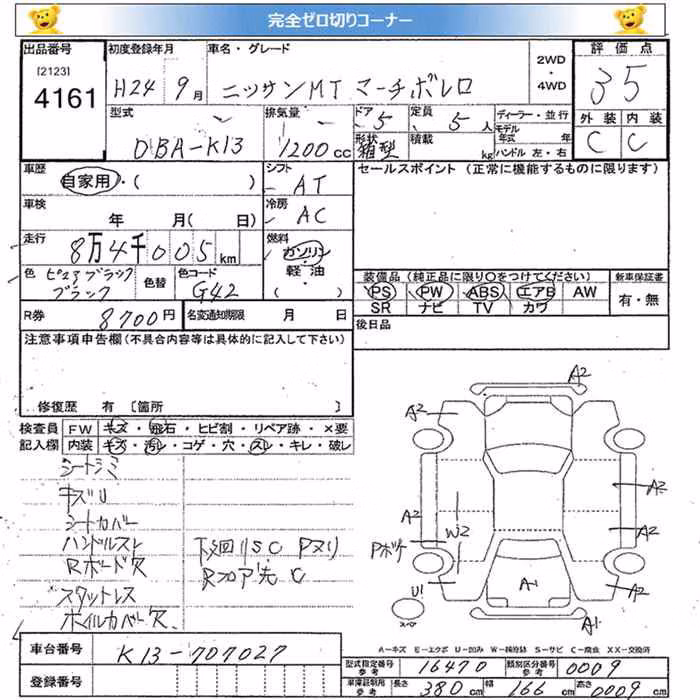 完全ゼロ切りコーナー
出品番号 初度登録年月 車名・グレード 2WD・4WD 評価点
[2123] 4161 H24 9月 ニッサンMT マーチボレロ 3 5
型式 排気量 ドア 定員 ディーラー・並行 外装 内装
DBA-K13 1200cc 5 5人 モデル年式 年 C C
形状 箱型 積載 kg ハンドル 左・右
車歴 シフト セールスポイント (正常に機能するものに限ります)
自家用・( ) AT
車検 冷房
年 月( 日) AC
走行 燃料
8万4千005km ガソリン
色 ピュアブラック 色替 色コード 軽油・
ブラック G42 ( )
装備品 (純正品に限り○をつけてください) 新車保証書
PS PW ABS エアB AW 有・無
SR ナビ TV カワ
R券 8700円 名変通知期限 月 日 後日品
注意事項申告欄(不具合内容等は具体的に記入して下さい)
修復歴 有 [箇所 ]
検査員 FW キズ・飛石・ヒビ割・リペア跡・×要
記入欄 内装 キズ・汚レ・コゲ・穴・スレ・キレ・破レ
シートシミ
キズU
シートカバー
ハンドルスレ 下廻リSC Pヌリ
Rボード欠 Rフロア先C
スタットレス
ホイルカバー欠
A2
A2
A2
A2 A2
W2
Pボケ
U1 A1 A2
スペ A1
A-キズ E-エクボ U-凹み W-補修跡 S-サビ C-腐食 XX-交換済
車台番号 K13-707027
登録番号
型式指定番号 参考 16470 類別区分番号 参考 0009
車庫証明用 参考 長さ 380cm 幅 166cm 高さ 0009cm